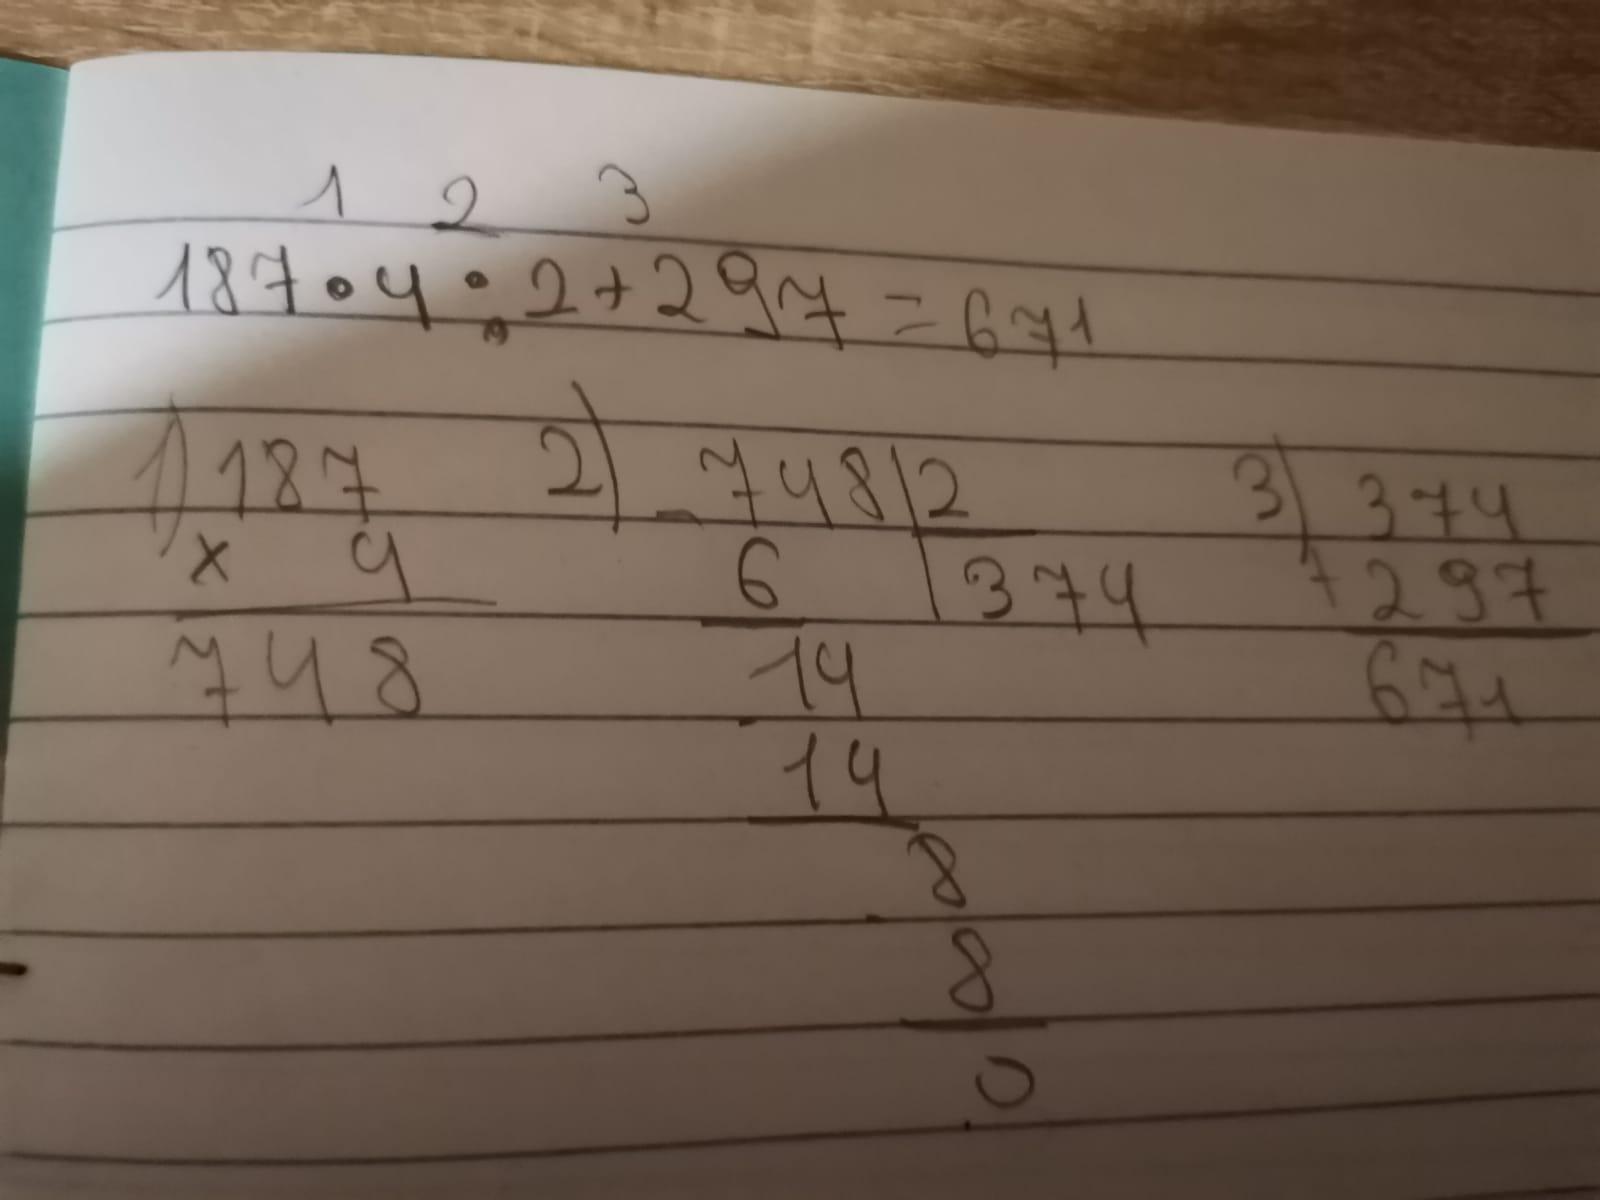 1 2 3
187 • 4 : 2 + 297 = 671
1) 187 2) 748 | 2 3) 374
x 4 - 6 | 374 + 297
748 14 671
- 14
8
- 8
0